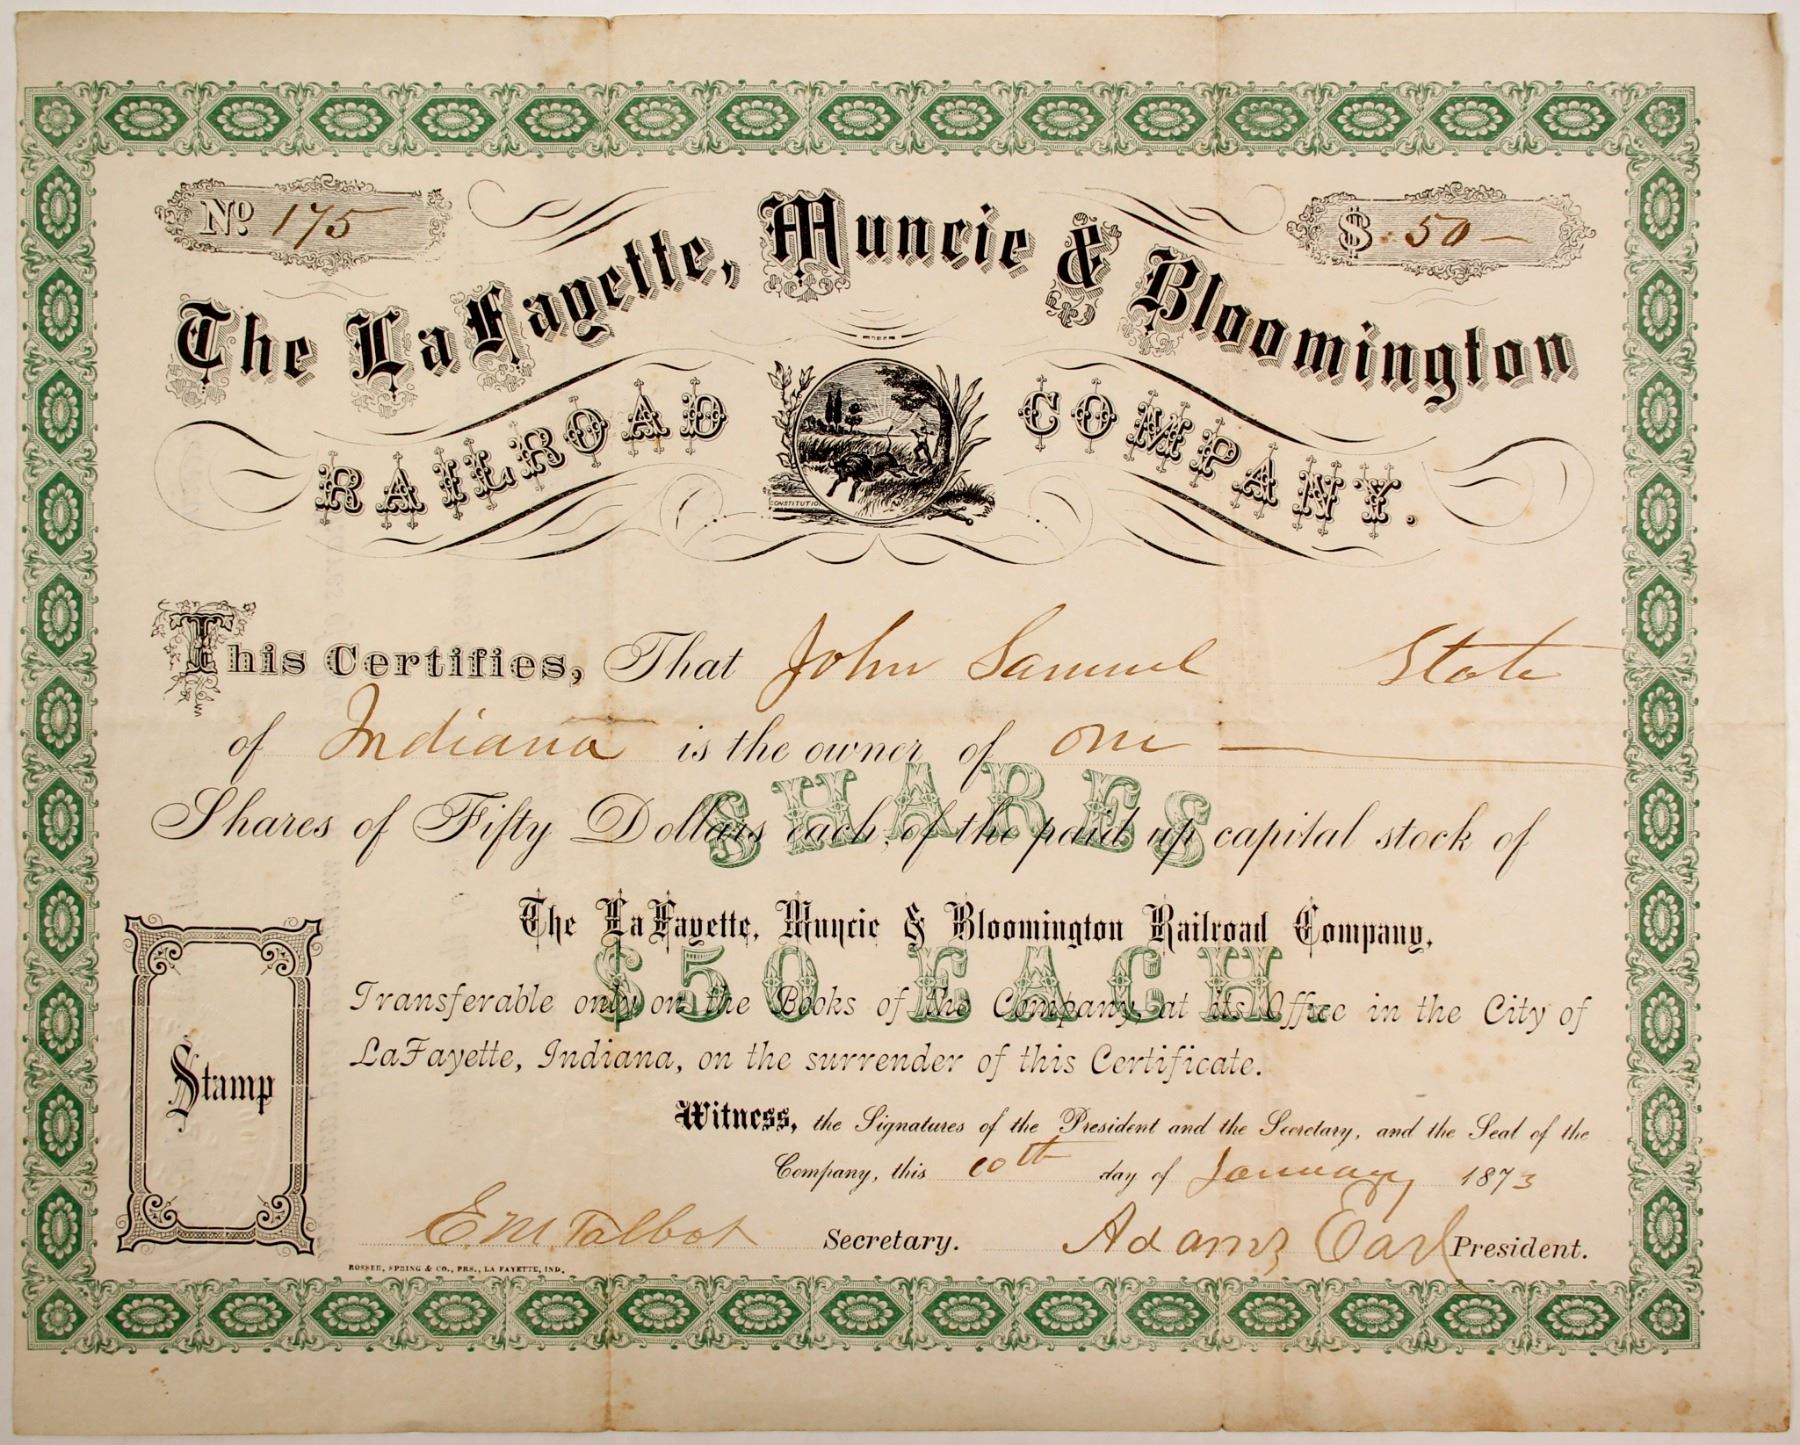 No. 175
$ 50 —
The LaFayette, Muncie & Bloomington
RAILROAD COMPANY.
CONSTITUTIO
This Certifies, That John Samuel State
of Indiana is the owner of one —
Shares of Fifty Dollars each, of the paid up capital stock of
SHARES
The LaFayette, Muncie & Bloomington Railroad Company,
$50 EACH.
Transferable only on the Books of the Company, at its Office in the City of
LaFayette, Indiana, on the surrender of this Certificate.
Stamp
Witness, the Signatures of the President and the Secretary, and the Seal of the
Company, this 10th day of January 1873
E. M. Talbot Secretary. Adams Earl President.
ROSSER, SPRING & CO., PRS., LA FAYETTE, IND.